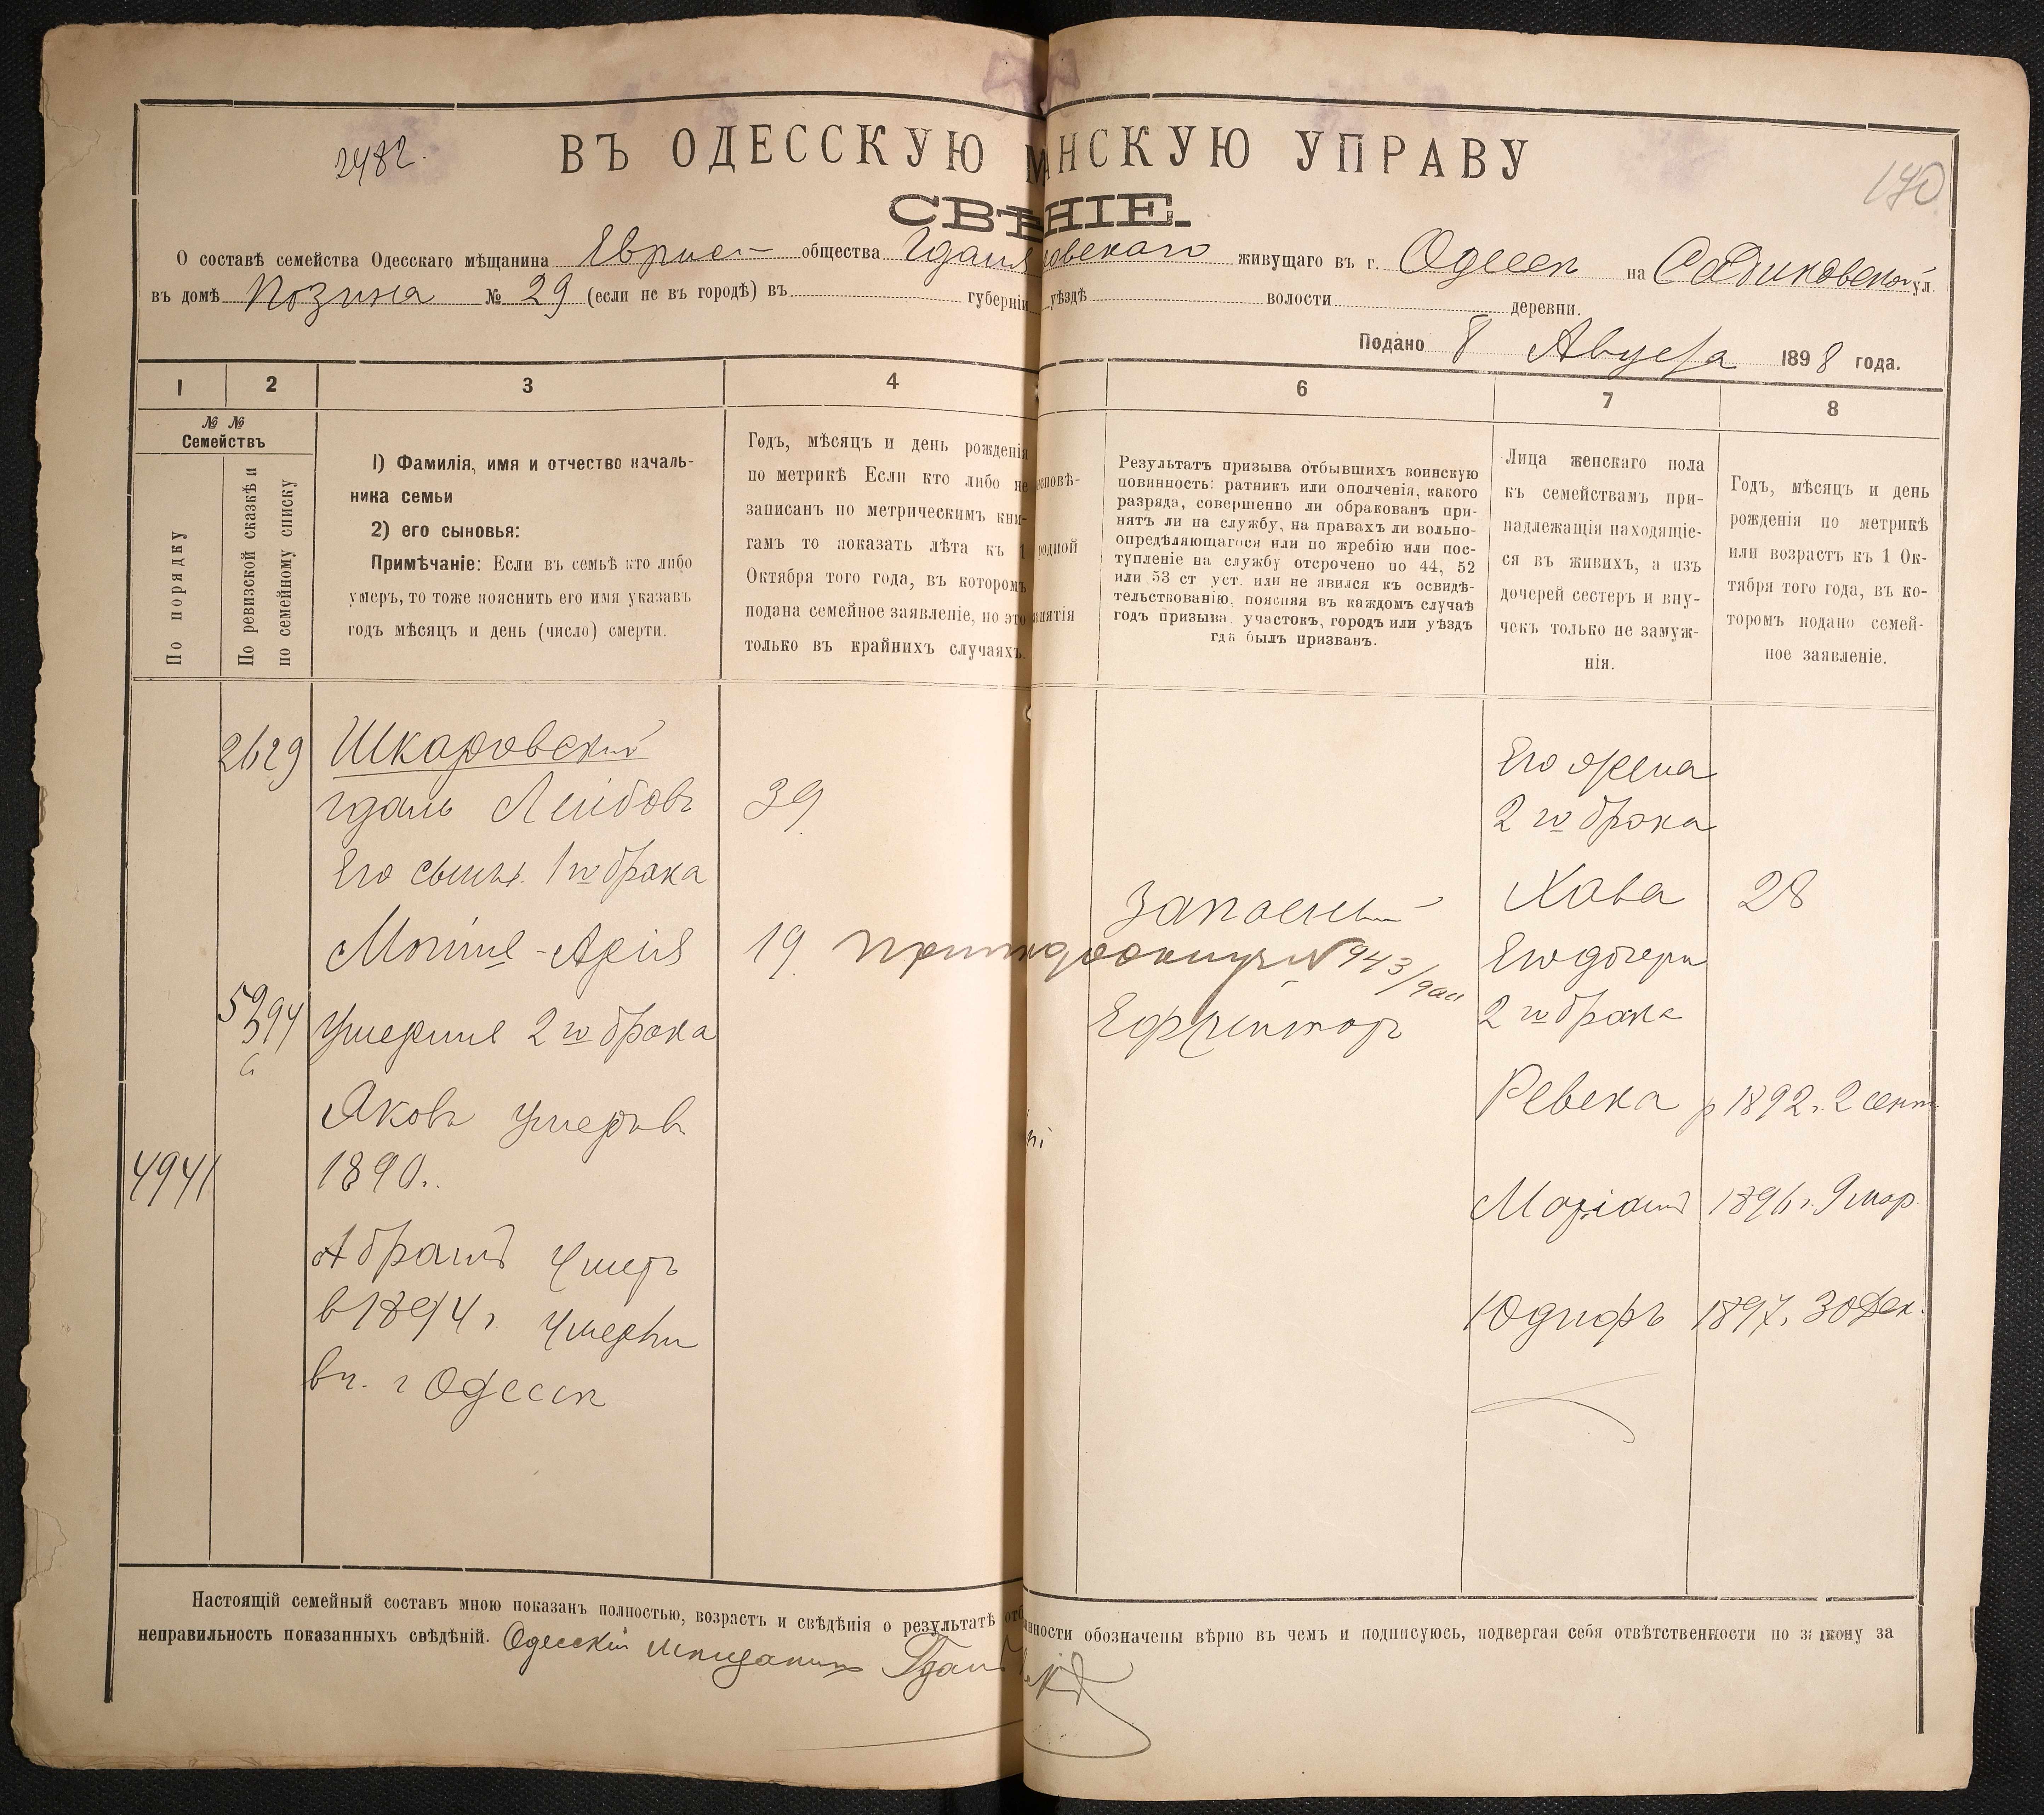 2482.
170
ВЪ ОДЕССКУЮ М АНСКУЮ УПРАВУ
СВѢ НІЕ.
О составѣ семейства Одесскаго мѣщанина Еврис- общества Гдаля овскаго живущаго въ г. Одессѣ на Садиковской ул.
въ домѣ № 29 (если не въ городѣ) въ губерніи уѣздѣ волости деревни.
Подано 8 Августа 1898 года.
1 2 3 4 6 7 8
№ №
Семействъ
По порядку
По ревизской сказкѣ и
по семейному списку
1) Фамилія, имя и отчество началь-
ника семьи
2) его сыновья:
Примѣчаніе: Если въ семьѣ кто либо
умеръ, то тоже пояснить его имя указавъ
годъ мѣсяцъ и день (число) смерти.
Годъ, мѣсяцъ и день рожденія
по метрикѣ Если кто либо не
записанъ по метрическимъ кни-
гамъ то показать лѣта къ 1
Октября того года, въ которомъ
подана семейное заявленіе, но это
только въ крайнихъ случаяхъ.
исповѣ-
родной
занятія
Результатъ призыва отбывшихъ воинскую
повинность: ратникъ или ополченія, какого
разряда, совершенно ли обракованъ при-
нятъ ли на службу, на правахъ ли вольно-
опредѣляющагося или по жребію или пос-
тупленіе на службу отсрочено по 44, 52
или 53 ст уст. или не явился къ освидѣ-
тельствованію, поясняя въ каждомъ случаѣ
годъ призыва, участокъ, городъ или уѣздъ
гдѣ былъ призванъ.
Лица женскаго пола
къ семействамъ при-
надлежащія находящіе-
ся въ живихъ, а изъ
дочерей сестеръ и вну-
чекъ только не замуж-
нія.
Годъ, мѣсяцъ и день
рожденія по метрикѣ
или возрастъ къ 1 Ок-
тября того года, въ ко-
торомъ подано семей-
ное заявленіе.
2629 Шкаровскій
Гдаль Лейбовъ 39
Его сынъ 1 го брака
Мошше-Арія 19.
5394
Умершіе 2 го брака
Яковъ умеръ в
4941 1890.
Абрамъ умеръ
в 1894 г. умерли
въ г Одессѣ
Запасный
№ 943/900
Ефрейторъ
Его жена
2 го брака
Хава 28
Его дочери
2 го брака
Ревека р 1892. 2 сент.
Маріамъ 1896 г. 9 мар.
Юдифь 1897. 30 Дек.
Настоящій семейный составъ мною показанъ полностью, возрастъ и свѣдѣнія о результатѣ отб инности обозначены вѣрно въ чемъ и подписуюсь, подвергая себя отвѣтственности по закону за
неправильность показанныхъ свѣдѣній. Одесскій мѣщанинъ Гдаль